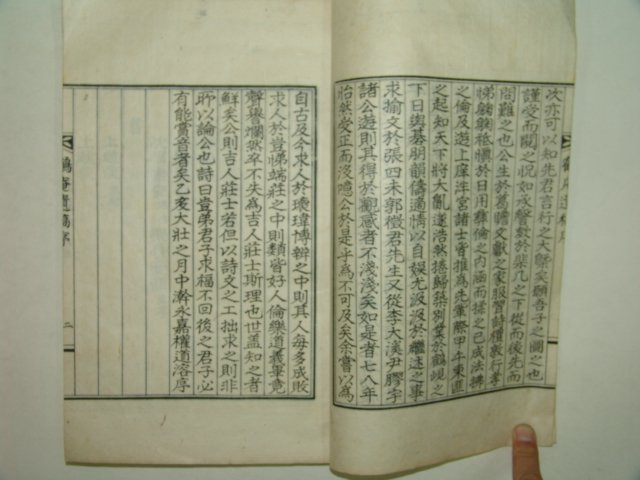 次亦可以知先君言行之大槩矣願吾子之圖之也
謹受而閱之怳如承謦欬於棐几之下從而後先而
問難之也公生於舊瞻文獻之家服習詩禮敦行孝
悌斂斂祗愼於日用彛倫之內涵而揉之已成法拂
之倫及遊上庠泮宮諸士皆推為先輩際甲午東匪
之起知天下將大亂遂浩然捲歸築別業於鶴境之
下日與碁朋韻儔適情以自娛尤汲汲於繼述之事
求揄文於張四未郭徵君先生又從李大溪尹膠宇
諸公遊則其得於觀感者不淺淺矣如是者七八年
怡然受正而沒噫公於是乎為不可及矣余嘗以為
自古及今求人於瓌瑋博辯之中則其人每多成敗
求人於豈悌端莊之中則類皆好人倫樂道義畢竟
聲譽爛然卒不失為吉人莊士斯理也世盖知之者
鮮矣公則吉人莊士若但以詩文之工拙求之則非
所以論公也詩曰豈弟君子求福不回後之君子必
有能賞音者矣乙亥大壯之月中澣永嘉權道溶序
鶴庵遺稿序
二